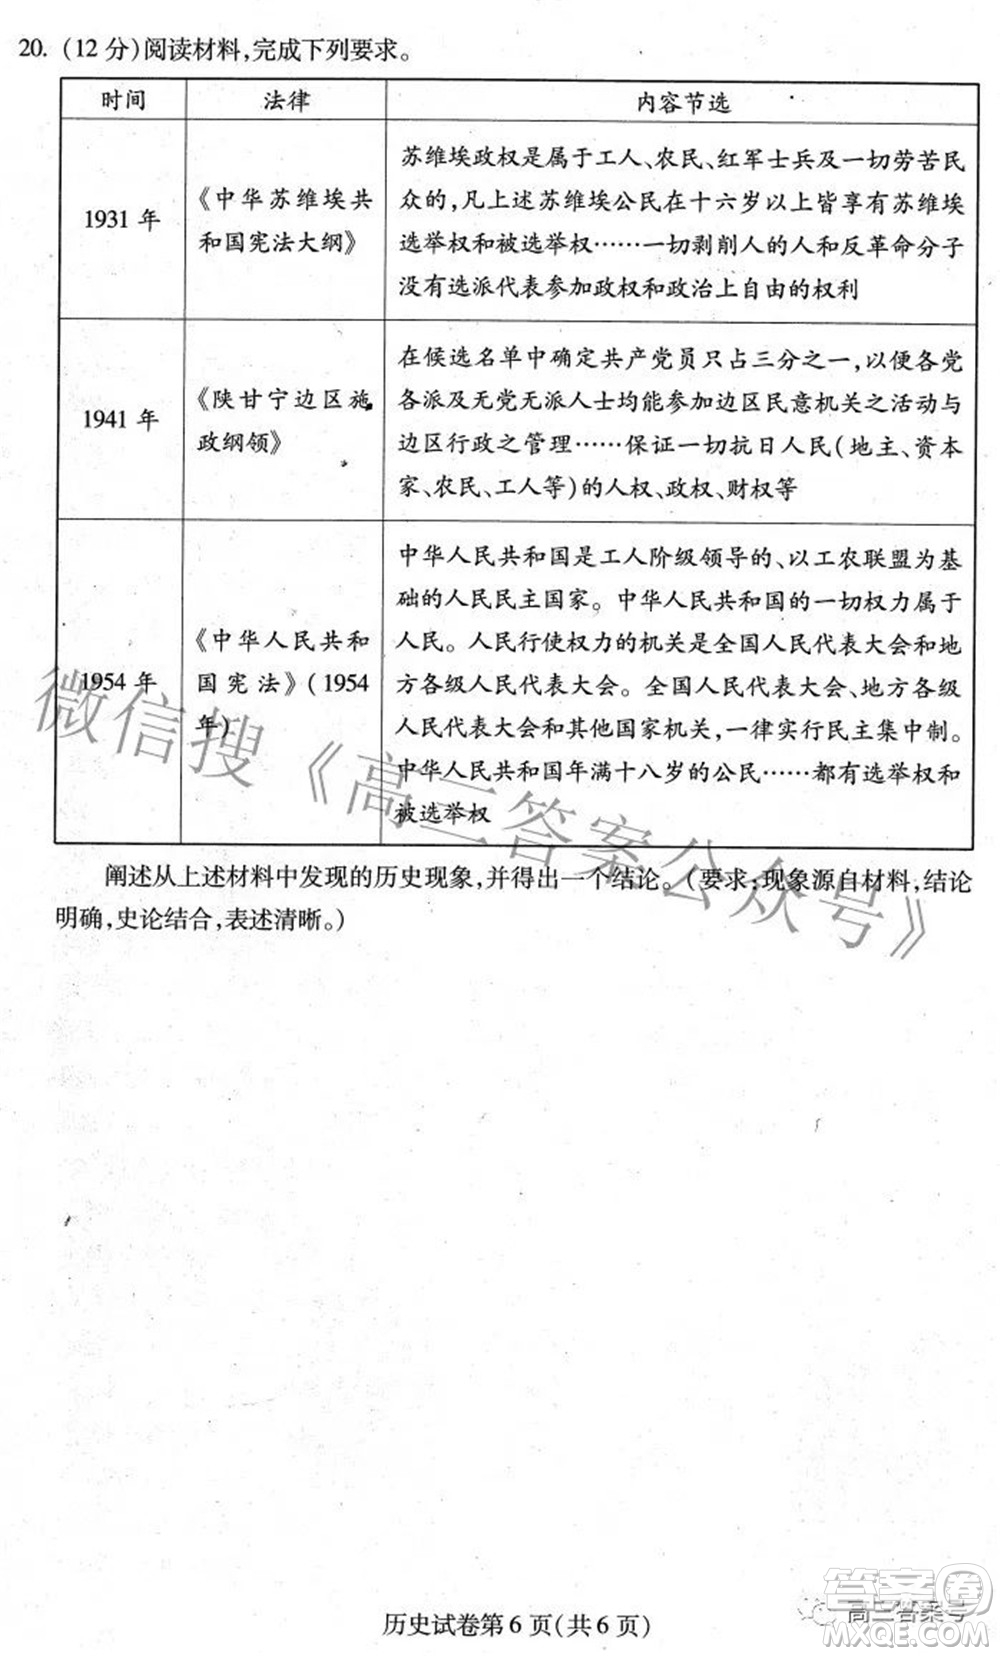 20. (12 分)阅读材料,完成下列要求。
时间 法律 内容节选
1931 年
《中华苏维埃共
和国宪法大纲》
苏维埃政权是属于工人、农民、红军士兵及一切劳苦民
众的,凡上述苏维埃公民在十六岁以上皆享有苏维埃
选举权和被选举权……一切剥削人的人和反革命分子
没有选派代表参加政权和政治上自由的权利
1941 年
《陕甘宁边区施
政纲领》
在候选名单中确定共产党员只占三分之一,以便各党
各派及无党无派人士均能参加边区民意机关之活动与
边区行政之管理……保证一切抗日人民(地主、资本
家、农民、工人等)的人权、政权、财权等
1954 年
《中华人民共和
国宪法》(1954
年)
中华人民共和国是工人阶级领导的、以工农联盟为基
础的人民民主国家。中华人民共和国的一切权力属于
人民。人民行使权力的机关是全国人民代表大会和地
方各级人民代表大会。全国人民代表大会、地方各级
人民代表大会和其他国家机关,一律实行民主集中制。
中华人民共和国年满十八岁的公民……都有选举权和
被选举权
阐述从上述材料中发现的历史现象,并得出一个结论。(要求:现象源自材料,结论
明确,史论结合,表述清晰。)
微信搜《高三答案公众号》
历史试卷第 6 页(共 6 页)
高三答案号
答案卷
MXQE.COM